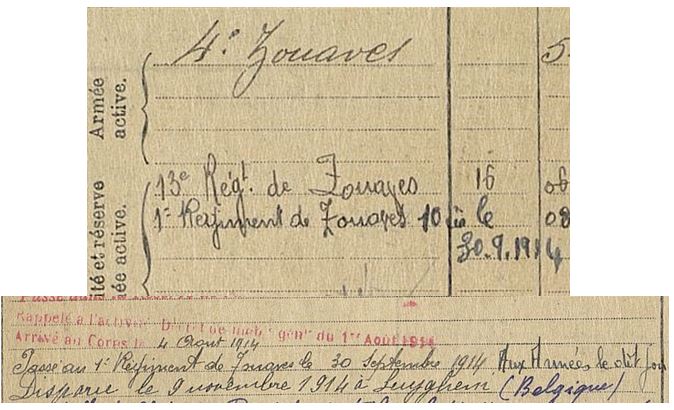 4e Zouaves 5
Armée
active.
13e Régt. de Zouaves 16 06
1er Régiment de Zouaves 10 le 08
té et réserve
ée active.
30.9.1914
Rappelé à l'activité gén. du 1er Août 1914
Arrivé au Corps le 4 Août 1914
Passé au 1er Régiment de Zouaves le 30 Septembre 1914 Aux Armées le dit jour
Disparu le 9 novembre 1914 à Luyghem (Belgique)